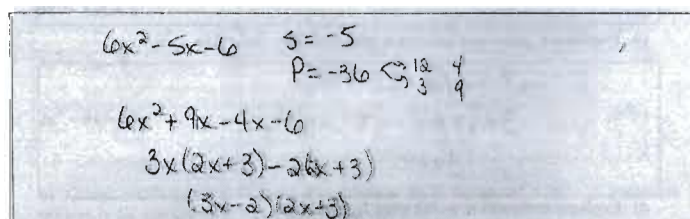 6x² - 5x - 6 S = -5
P = -36 12 4
3 9
6x² + 9x - 4x - 6
3x(2x + 3) - 2(2x + 3)
(3x - 2)(2x + 3)